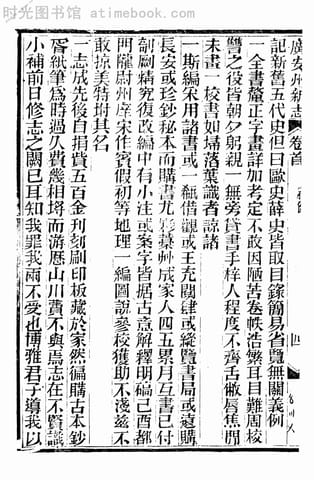 时光图书馆 atimebook.com
廣安州新志 卷首 四
記新舊五代史但曰歐史薛史皆取目錄簡易省覽無關義例
一全書釐正字畫詳加考定不敢因陋苦卷帙浩繁耳目難周校
讐之役皆朝夕躬親一無旁貸書手梓人程度不齊舌敝唇焦間
未盡一校書如埽落葉識者諒諸
一斯編采用諸書或一瓻借觀或王充閱肆或縱覽書局或遠購
長安或珍鈔秘本而購書尤夥藁艸成家人四五累月互書已付
剞劂精究復改編中有小注或案字皆据古意解釋明碻己酉都
門隴尉州庠宋作賓假初等地理一編圖說參校獲助不淺並不
敢掠美特坿其名
一志成先後自捐費五百金刊刻刷印板藏於家然徧購古本鈔
胥紙筆為時過久費幾相埒而游歷山川費不與焉志在不賢識
小補前日修志之闕已耳知我罪我兩不受也博雅君子導我以